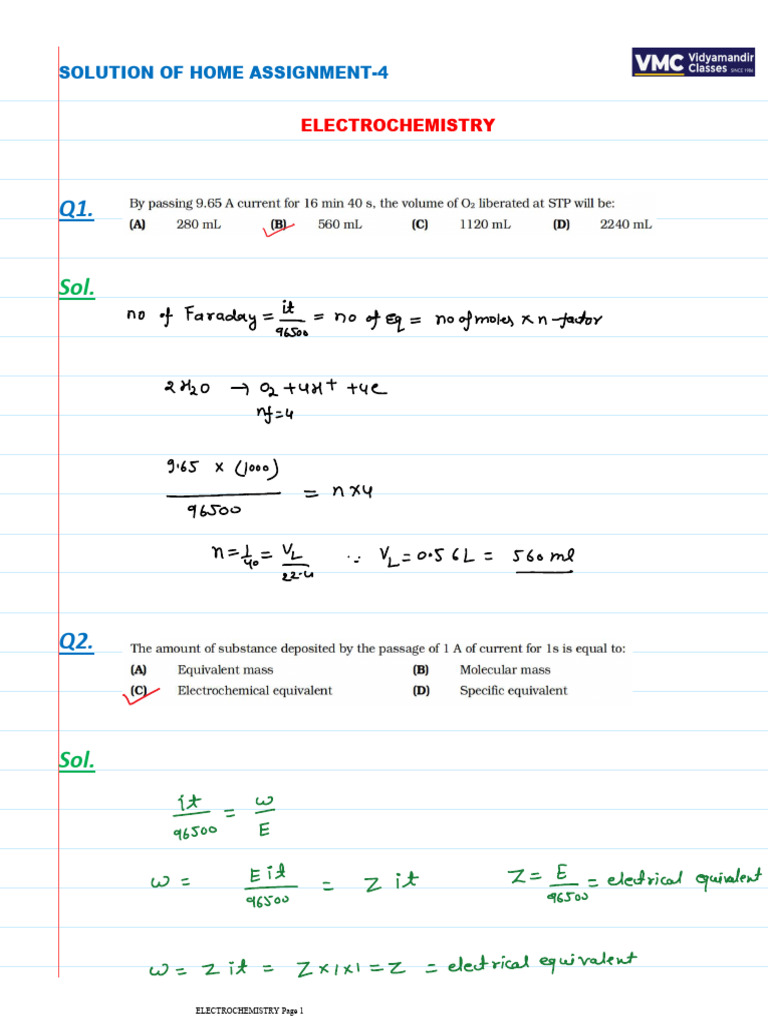 SOLUTION OF HOME ASSIGNMENT-4
VMC Vidyamandir Classes SINCE 1986
ELECTROCHEMISTRY
Q1.
By passing 9.65 A current for 16 min 40 s, the volume of O₂ liberated at STP will be:
(A) 280 mL (B) 560 mL (C) 1120 mL (D) 2240 mL
Sol.
no of Faraday = it/96500 = no of Eq = no of moles × n-factor
2H2O → O2 + 4H+ + 4e
nf=4
9.65 × (1000)/96500 = n×4
n = 1/40 = VL/22.4 ∵ VL = 0.56L = 560 ml
Q2.
The amount of substance deposited by the passage of 1 A of current for 1s is equal to:
(A) Equivalent mass (B) Molecular mass
(C) Electrochemical equivalent (D) Specific equivalent
Sol.
it/96500 = w/E
w = Eit/96500 = Z it Z = E/96500 = electrical equivalent
w = Z it = Z×1×1 = Z = electrical equivalent
ELECTROCHEMISTRY Page 1